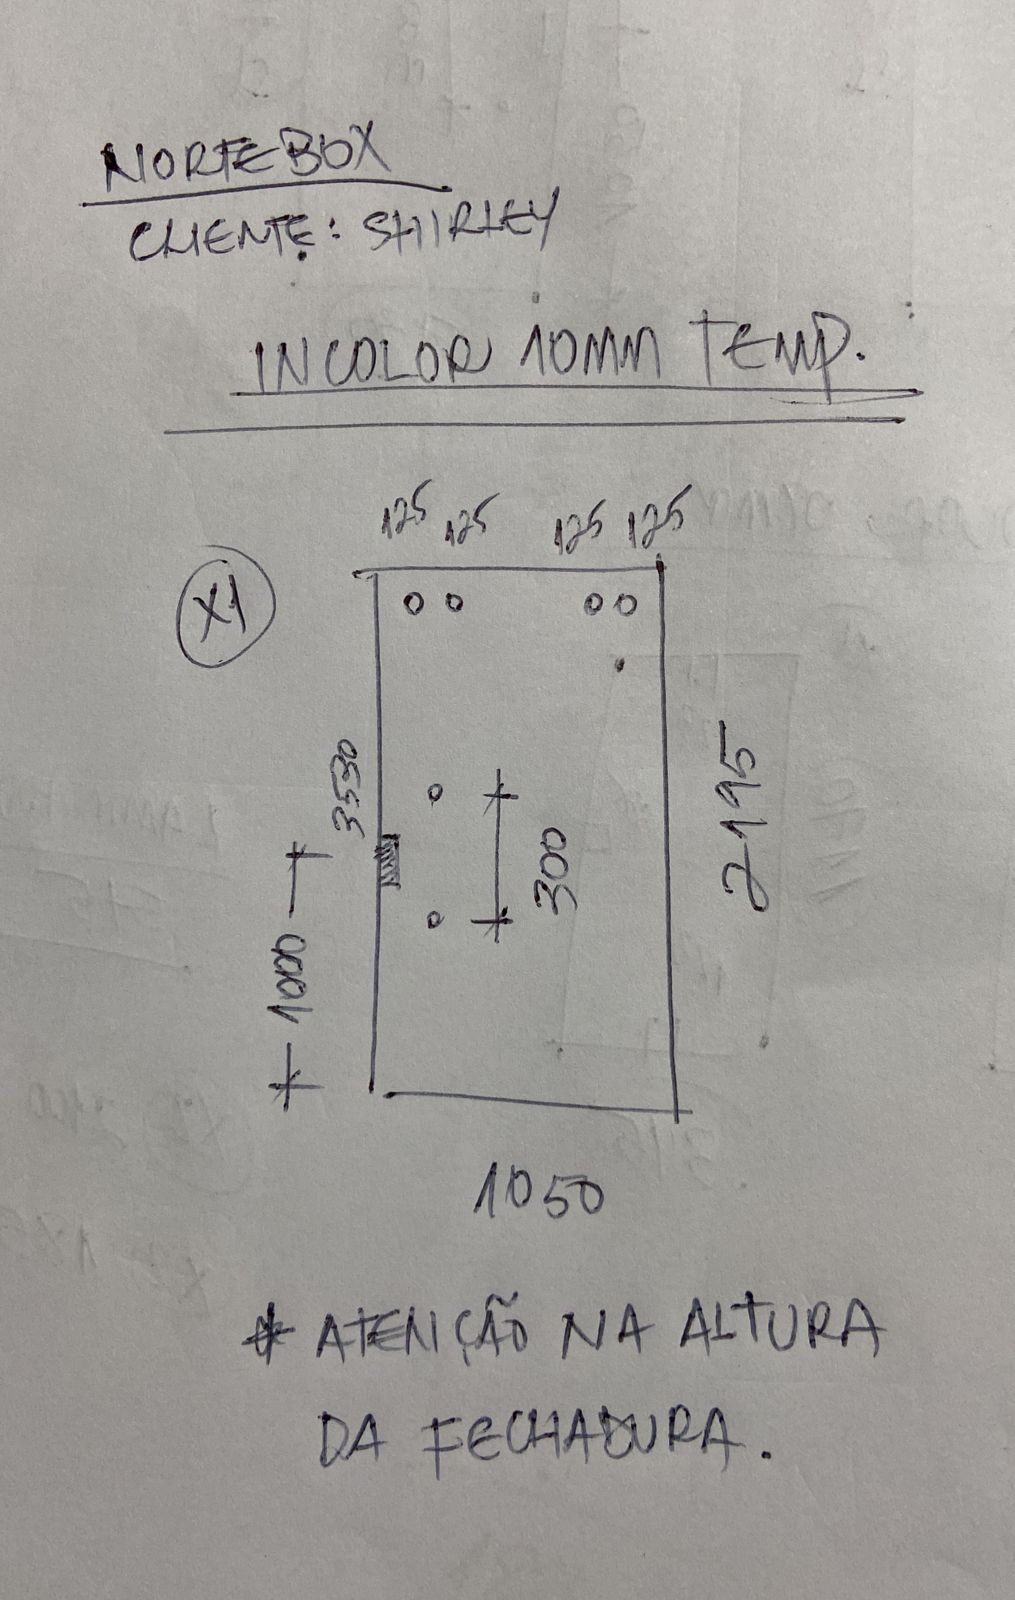 NORTEBOX
CLIENTE: SHIRLEY
INCOLOR 10MM TEMP.
125 125 125 125
X1
3530
2195
300
1000
1050
* ATENÇÃO NA ALTURA
DA FECHADURA.